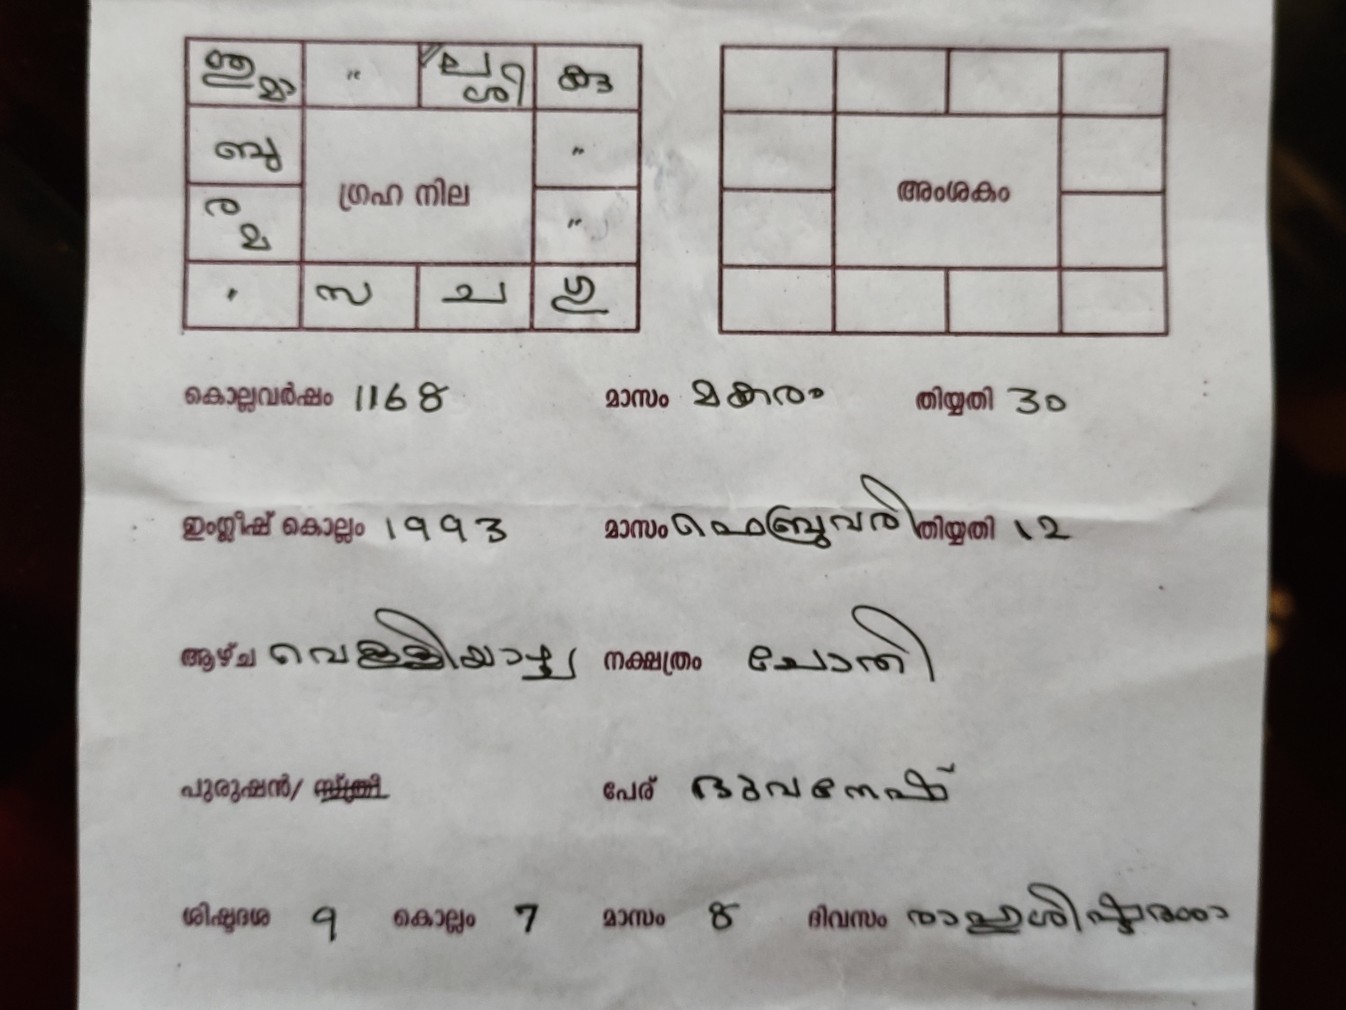 ല കു
ശി
ബു
ഗ്രഹ നില
അംശകം
ര
മ
സ ച ഗു
കൊല്ലവർഷം 1168 മാസം മകരം തിയ്യതി 30
ഇംഗ്ലീഷ് കൊല്ലം 1993 മാസം ഫെബ്രുവരി തിയ്യതി 12
ആഴ്ച വെള്ളിയാഴ്ച നക്ഷത്രം ചോതി
പുരുഷൻ/ സ്ത്രീ പേര് ഭുവനേഷ്
ശിഷ്ടദശ 9 കൊല്ലം 7 മാസം 8 ദിവസം